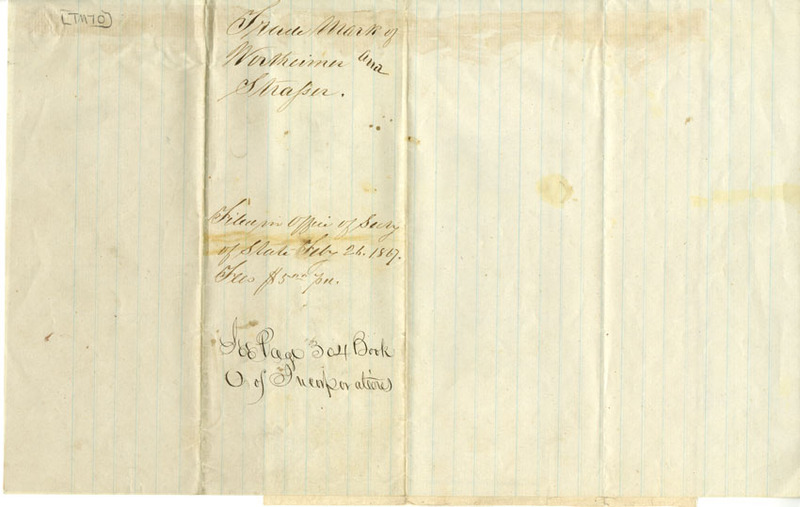 [TM70]
Trade Mark of
Wertheimer and
Strasser.
Filed in Office of Secy
of State Feby 26. 1867.
Fees $5.00 pd.
See Page 304 Book
C of Incorporations